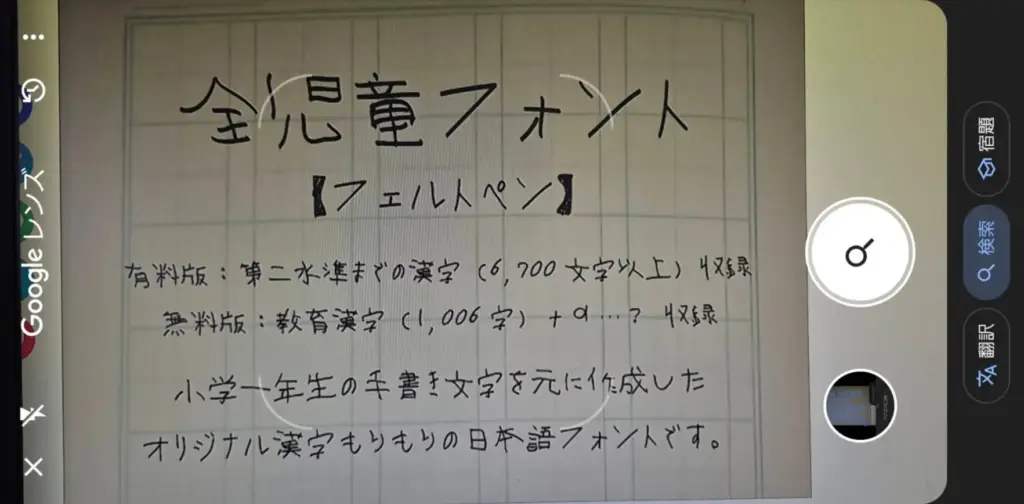 全児童フォント
【フェルトペン】
有料版：第二水準までの漢字（6,700文字以上）収録
無料版：教育漢字（1,006字）+α…？収録
小学一年生の手書き文字を元に作成した
オリジナル漢字もりもりの日本語フォントです。
Google レンズ
宿題
検索
翻訳